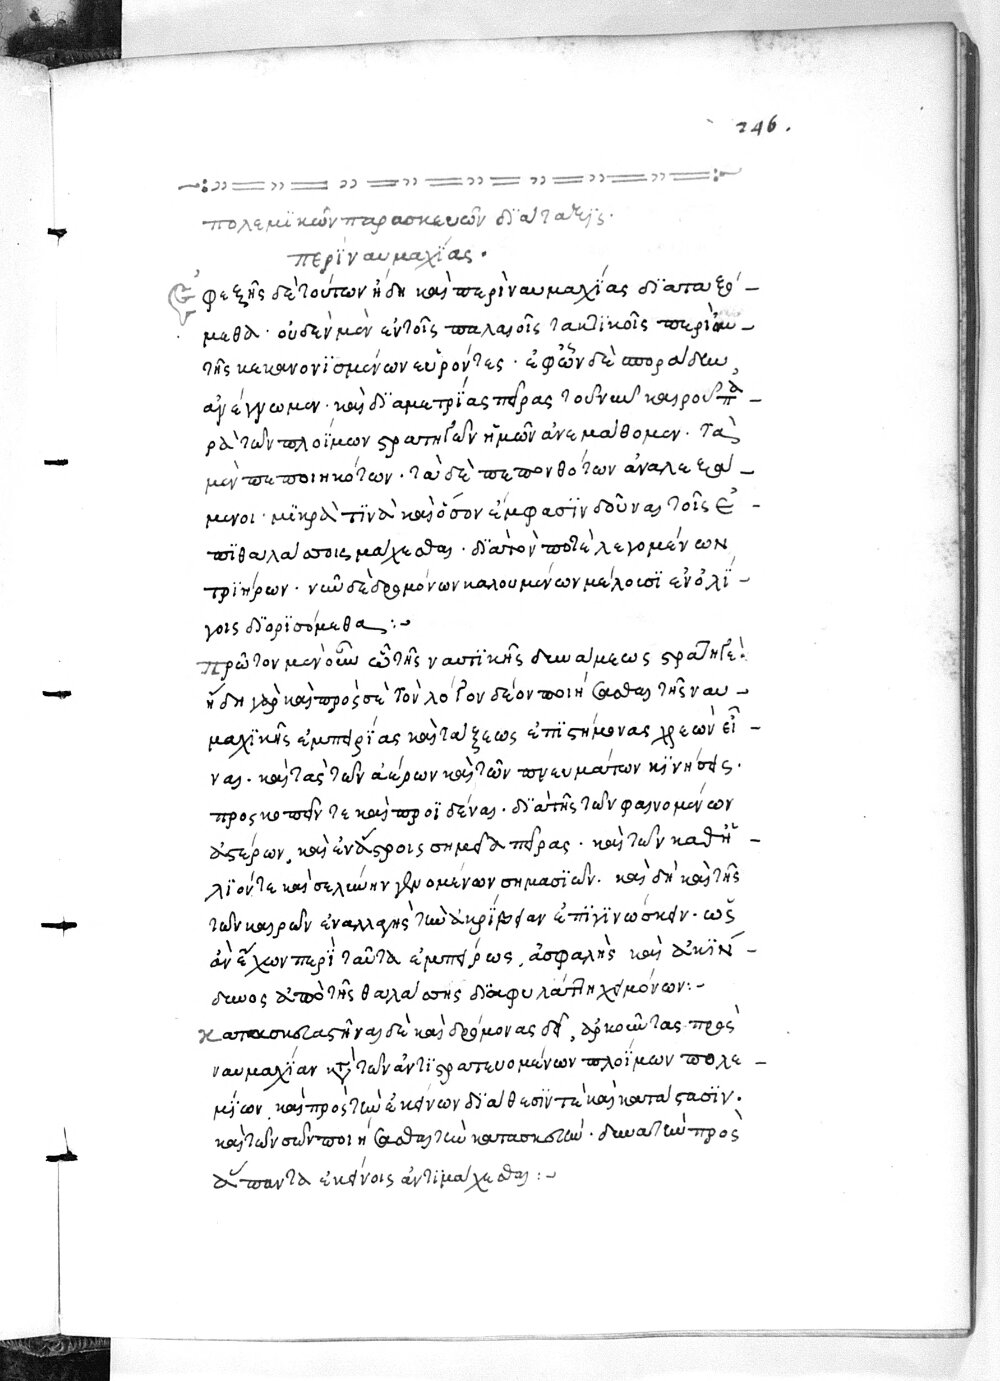 246.
πολεμϊκῶν παρασκευῶν διάταξϊς.
περὶ ναυμαχΐας.
Ἐφεξῆς δὲ τούτων ἤδη καὶ περὶ ναυμαχίας διαταξό-
μεθα· οὐδὲν μὲν ἐν τοῖς παλαιοῖς τακτϊκοῖς περὶ αυ-
τῆς κεκανονϊσμένων εὑρόντες· ἐφ ὧν δὲ σποράδην
ἀνέγνωμεν· καὶ διαμετρίας πείρας τοῦ νῦν καιροῦ πα-
ρὰ τῶν πλοΐμων στρατηγῶν ἡμῶν ἀνεμάθομεν· τὰ
μὲν πεποιηκότων· τὰ δὲ πεπονθότων ἀναλεξά-
μενοι· μϊκρὰ τϊνὰ καὶ ὅσον ἔμφασϊν δοῦναι τοῖς ἐ-
πϊθαλάσσοις μάχεσθαι· διὰ τὸν ποτὲ λεγομένων
τριήρων· νῦν δὲ δρομόνων καλουμένων μέλουσϊ ἐν ὀλί-
γοις διορϊσόμεθα:~
Πρῶτον μὲν οὖν ὦ τῆς ναυτϊκῆς δυνάμεως στρατηγὲ·
ἤδη γὰρ καὶ πρὸς σὲ τὸν λόγον δέον ποιήσασθαι τῆς ναυ-
μαχϊκῆς ἐμπειρίας καὶ τάξεως ἐπϊστήμονας χρεὼν εἶ-
ναι· καὶ τὰς τῶν ἀέρων καὶ τῶν πνευμάτων κϊνήσεις·
προσκοπεῖν τε καὶ προϊδέναι· διὰ τῆς τῶν φαινομένων
ἀστέρων, καὶ ἐν ἄστροις σημεῖα πείρας· καὶ τῶν καθ ἥ-
λϊόν τε καὶ σελήνην γϊνομένων σημασϊῶν· καὶ δὴ καὶ τῆς
τῶν καιρῶν ἐναλλαγῆς τὴν ἀκρίβειαν ἐπϊγϊνώσκειν· ὡς
ἂν ἔχων περὶ ταῦτα ἐμπείρως, ἀσφαλὴς καὶ ἀκίν-
δυνος ἀπὸ τῆς θαλάσσης διαφυλάττη χειμόνων:~
Κατασκευασθῆναι δὲ καὶ δρόμονας δεῖ, ἀρκοῦντας πρὸς
ναυμαχίαν κατὰ τῶν ἀντϊστρατευομένων πλοΐμων πολε-
μίων, καὶ πρὸς τὴν ἐκείνων διάθεσίν τε καὶ κατάστασϊν.
καὶ τῶν σῶν ποιήσασθαι τὴν κατασκευήν· δυνατὴν πρὸς
ἅπαντα ἐκείνοις ἀντιμάχεσθαι:~